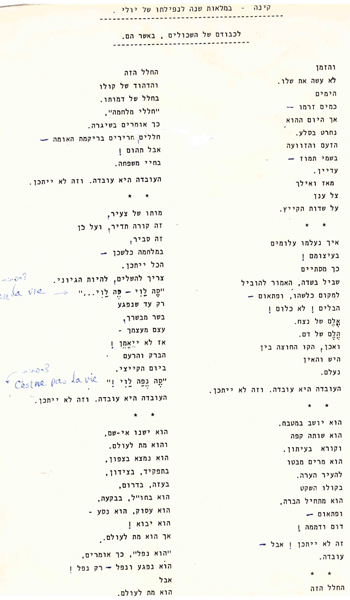 קינה - במלאות שנה לנפילתו של יולי .
לכבודם של השכולים , באשר הם.
והזמן
לא עשה את שלו.
הימים
כמים זרמו –
אך היום ההוא
נחרט בסלע.
הזעם והזוועה
בשמי תמוז –
עדיין.
מאז ואילך
צל ענן
על שדות הקייץ.
* *
איך נעלמו עלומים
בעיצומם !
כך מסתיים
שביל בשדה, האמור להוביל
למקום כלשהו, ופתאום –
הבלים ! לא כלום !
אָלֶם של נצח.
הֶלֶם של דם.
ואכן, הקו החוצה בין
היש והאין
נעלם.
העובדה היא עובדה. וזה לא ייתכן.
* *
הוא יושב במטבח.
הוא שותה קפה
וקורא בעיתון.
הוא מרים מבטו
להעיר הערה.
בקולו השקט
הוא מתחיל הברה,
ופתאום –
דום ודממה !
זה לא ייתכן ! אבל –
עובדה.
* *
החלל הזה
החלל הזה
והדהוד של קולו
בחלל של דמותו.
"חללי מלחמה",
כך אומרים בשיגרה.
חללים חרירים בריקמת האומה –
אבל תהום !
בחיי משפחה.
העובדה היא עובדה. וזה לא ייתכן.
* *
מותו של צעיר,
זה קורה תדיר, ועל כן
זה סביר,
במלחמה כלשכן –
הכל ייתכן.
צריך להשלים, להיות הגיוני.
"סֶה לָוִי – סֶה לָוִי..."
רק עד שנפגע
בשר מבשרך,
עצם מעצמך -
אז לא ייאמן !
הברק והרעם
ביום הקייצי.
"סֶה נֶפָּה לָוִי !"
העובדה היא עובדה. וזה לא ייתכן.
* *
הוא ישנו אי-שם,
והוא מת לעולם.
הוא נמצא בצפון,
בתפקיד, בצידון,
בעזה, בדרום,
הוא בחו"ל, בבקעה,
הוא עסוק, הוא נסע -
הוא יבוא !
אך הוא מת לעולם.
"הוא נפל", כך אומרים,
הוא נפגע ונפל – רק נפל !
אבל
הוא מת לעולם.
la vie
C'est ne pas la vie